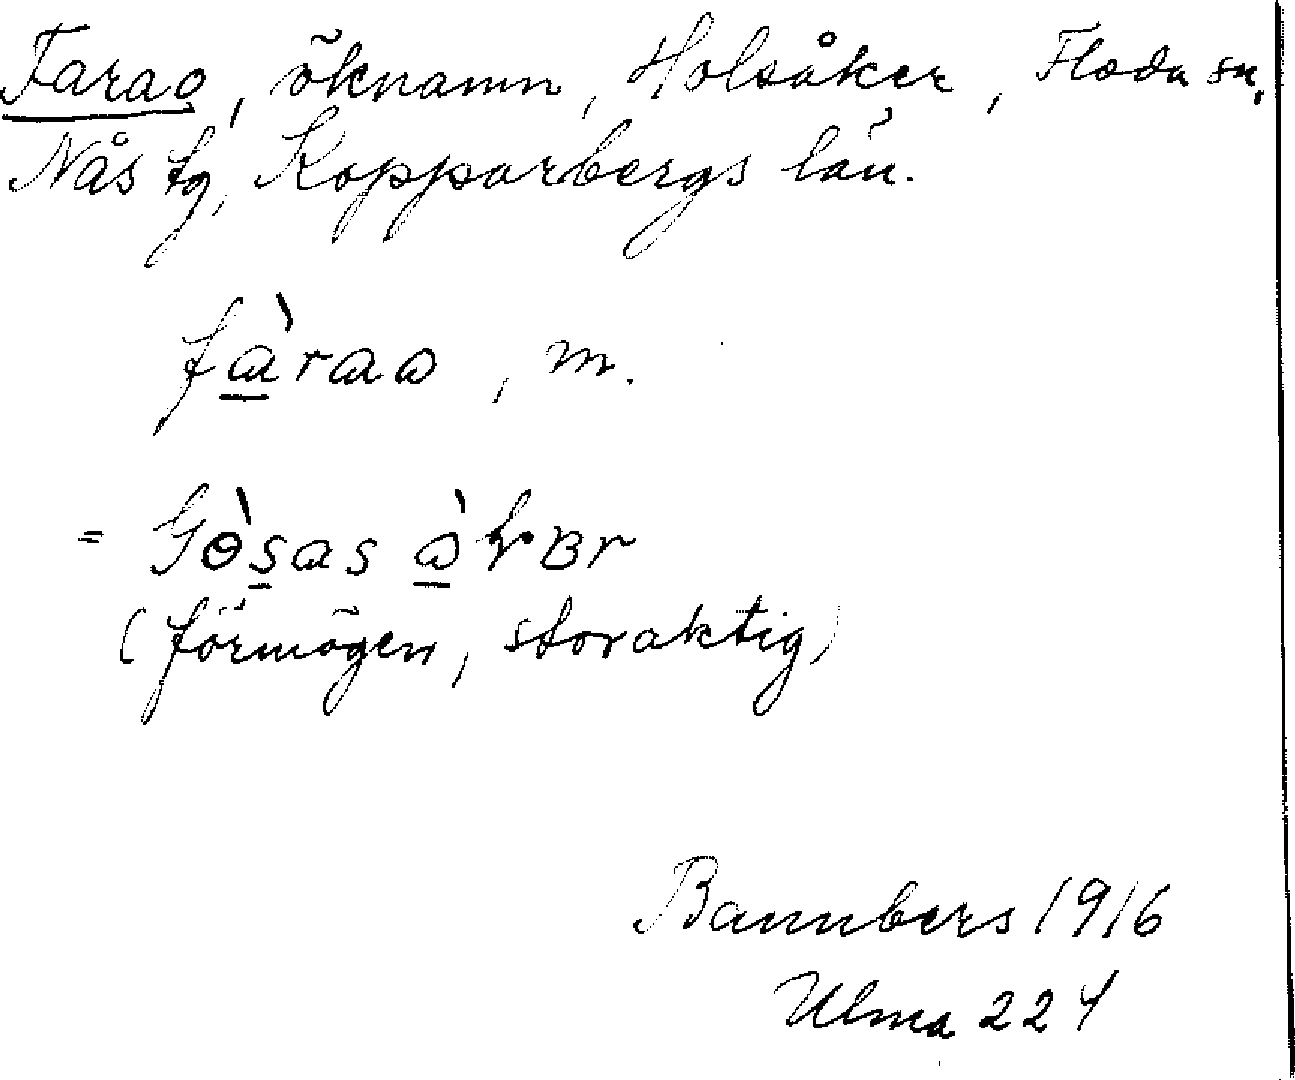 Farao, öknamn, Holsåker, Floda sn,
Nås tg, Kopparbergs län.
fàrao, m.
= Gòsas àkər
(förmögen, storaktig)
Bannbers 1916
Ulma 224